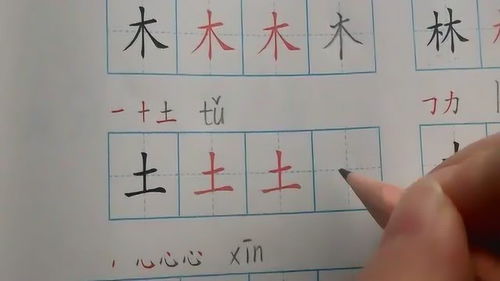 木 木 木 木 林
一 十 土 tǔ ㇆ 力
土 土 土
心 心 心 xīn